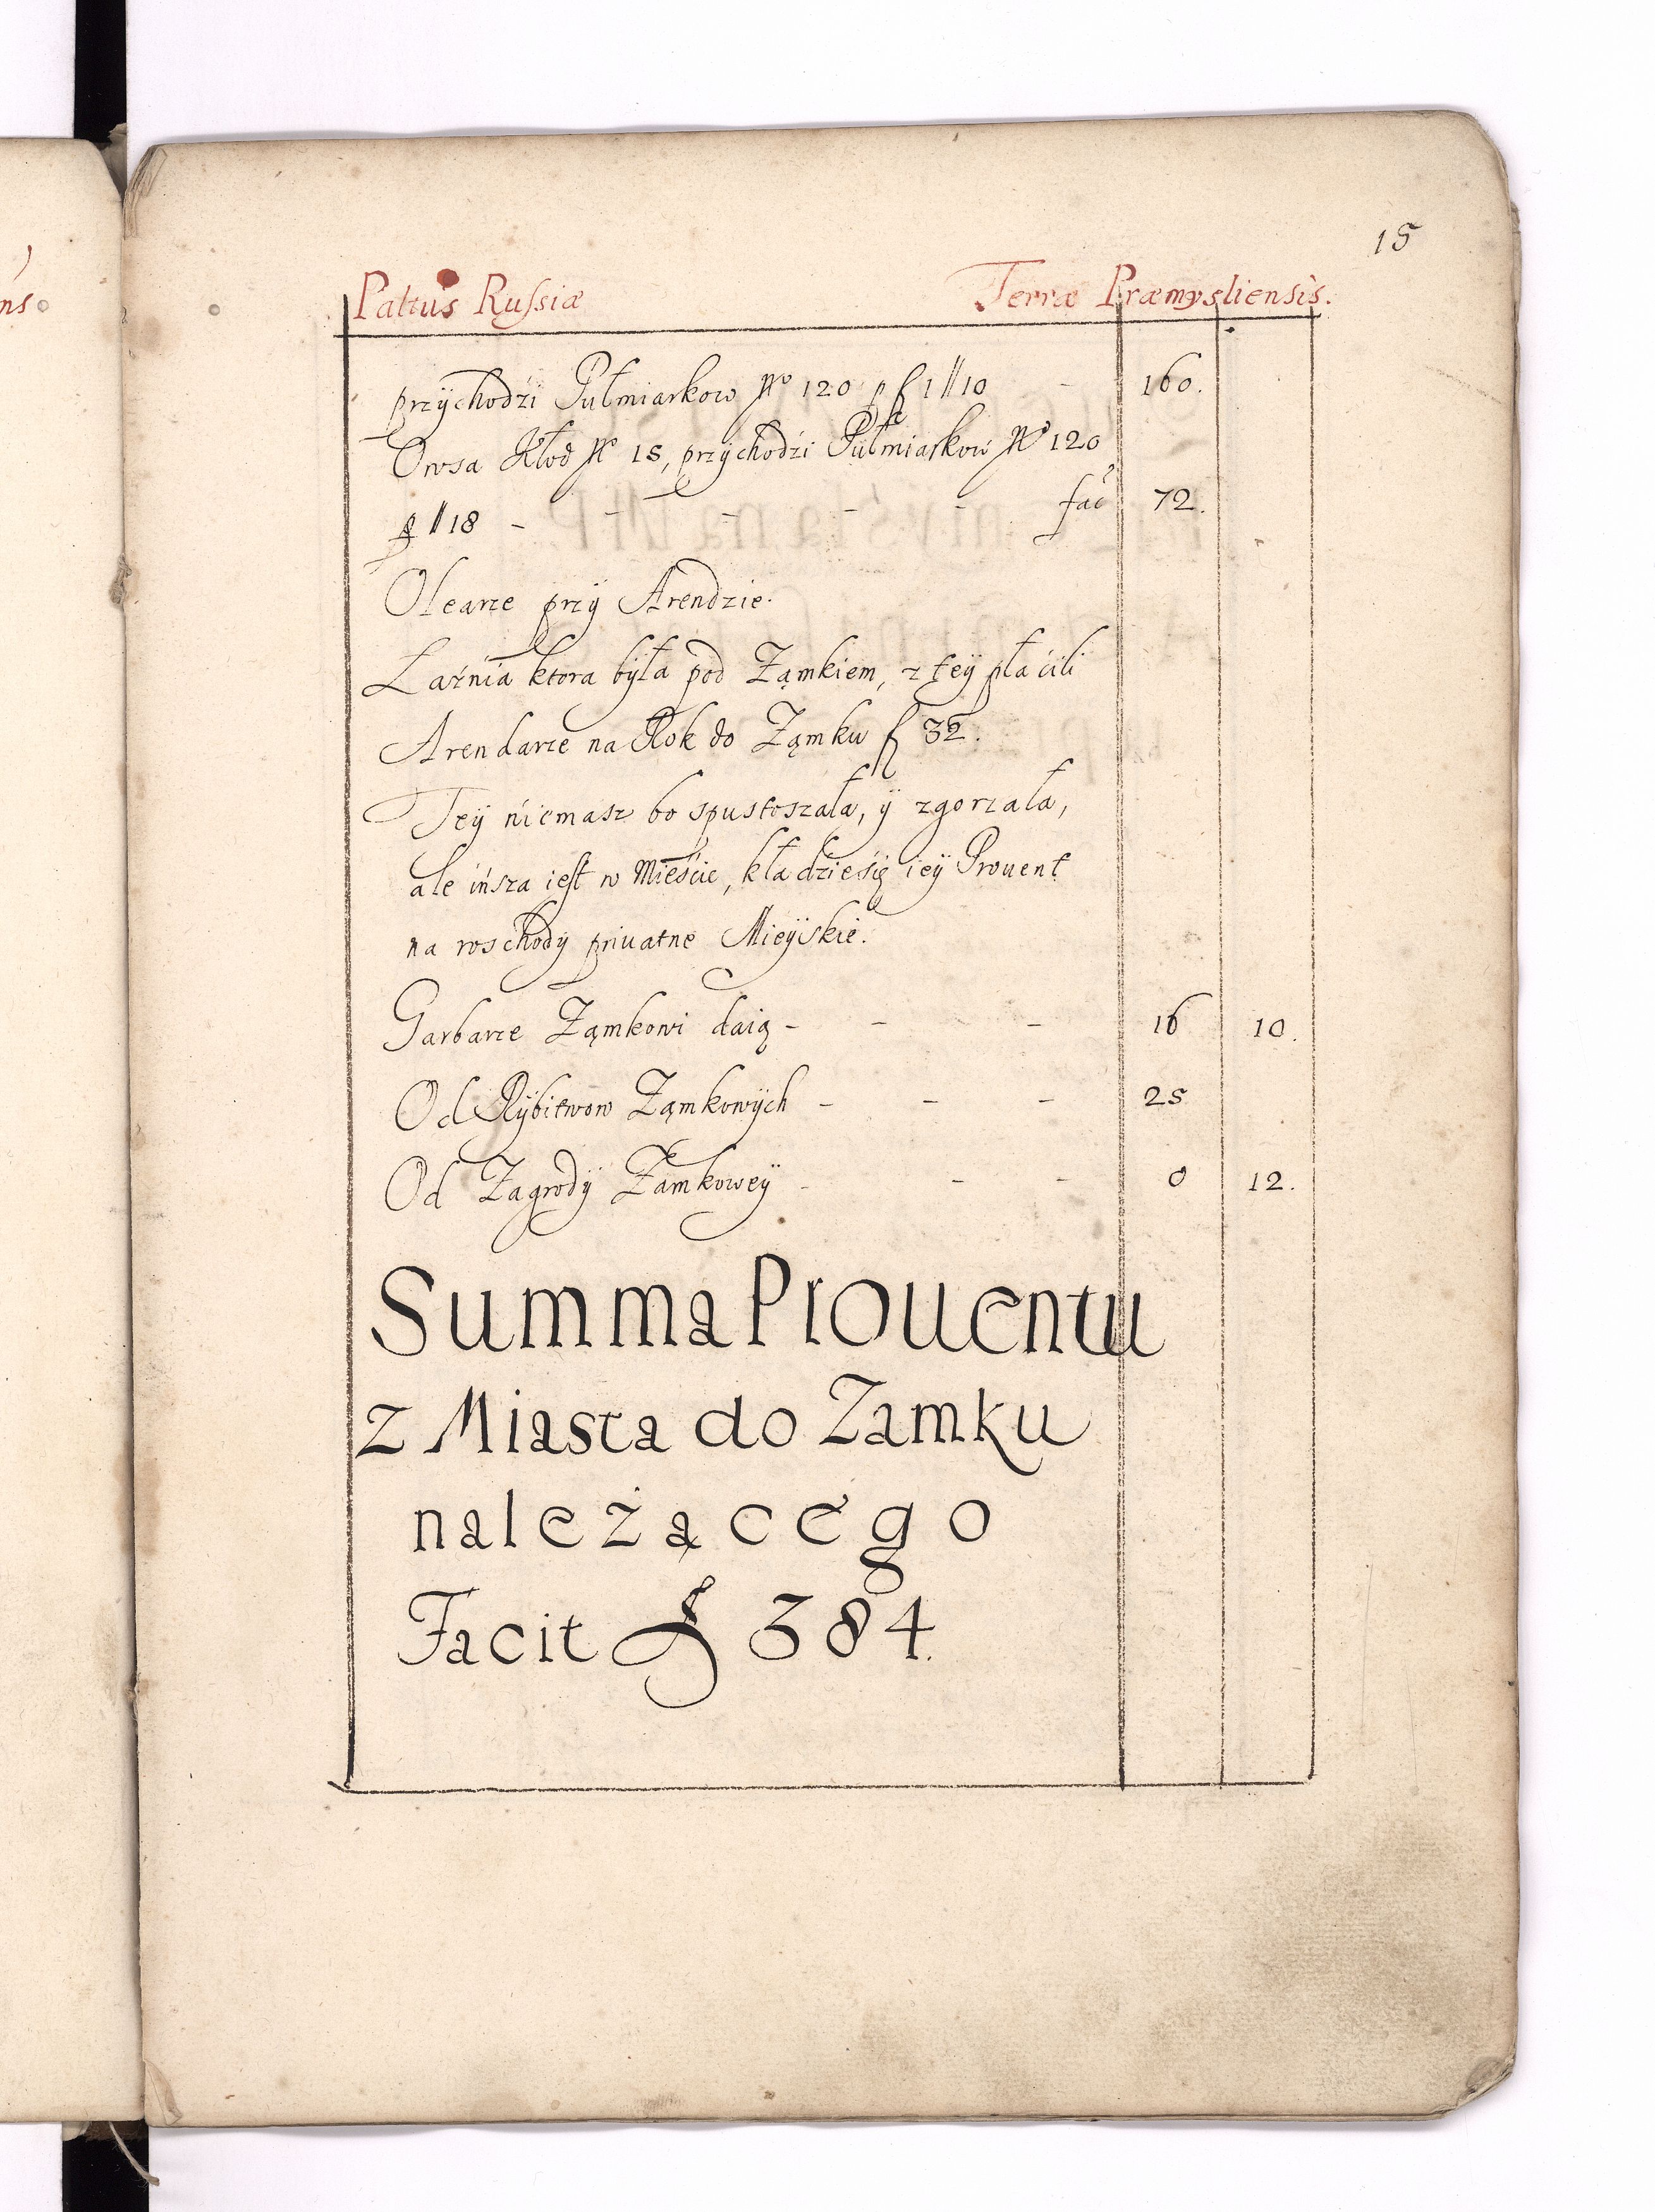 15
Paltus Russiæ Terræ Præmysliensis.
przychodźi Pułmiarkow No 120 p f 1 ǁ 10 - 160.
Owsa Kłod No 15, przychodźi Pułmiarkow No 120
p ǁ 18 - - - - - fac 72.
Olearze przy Arendzie.
Łaźnia ktora była pod Ząmkiem, z tey płaćili
Arendarze na Rok do Ząmku f 32.
Tey niemasz bo spustoszała, y zgorzała,
ale insza iest w Mieśćie, kładzieśię iey Prouent
na roschody priuatne Mieyskie.
Garbarze Ząmkowi daią - - - - 16 10.
Od Rybitwow Ząmkowych - - - 25
Od Zagrody Zamkowey - - - 0 12.
Summa Prouentu
z Miasta do Zamku
należącego
Facit f 384.